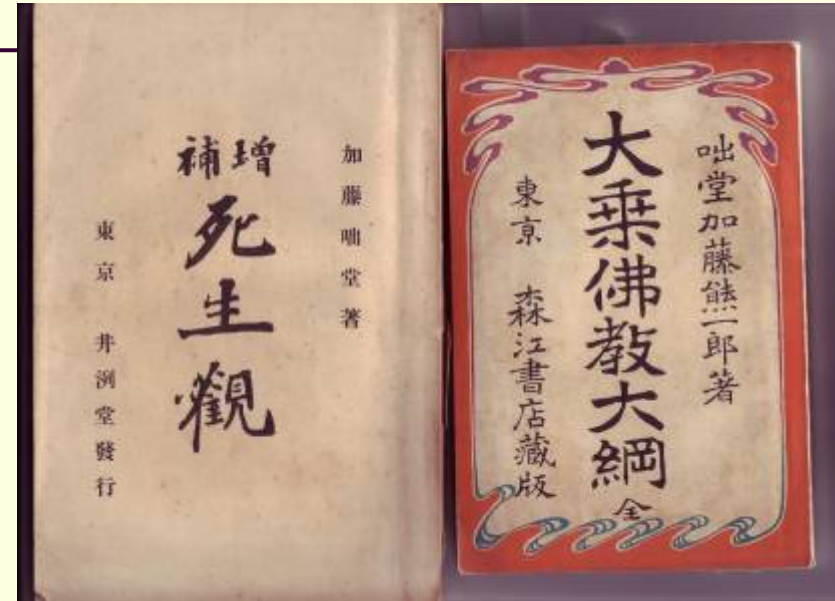 加藤咄堂著
増補
死生觀
東京 井洌堂發行
咄堂加藤熊一郎著
大乗佛教大綱 全
東京 森江書店藏版